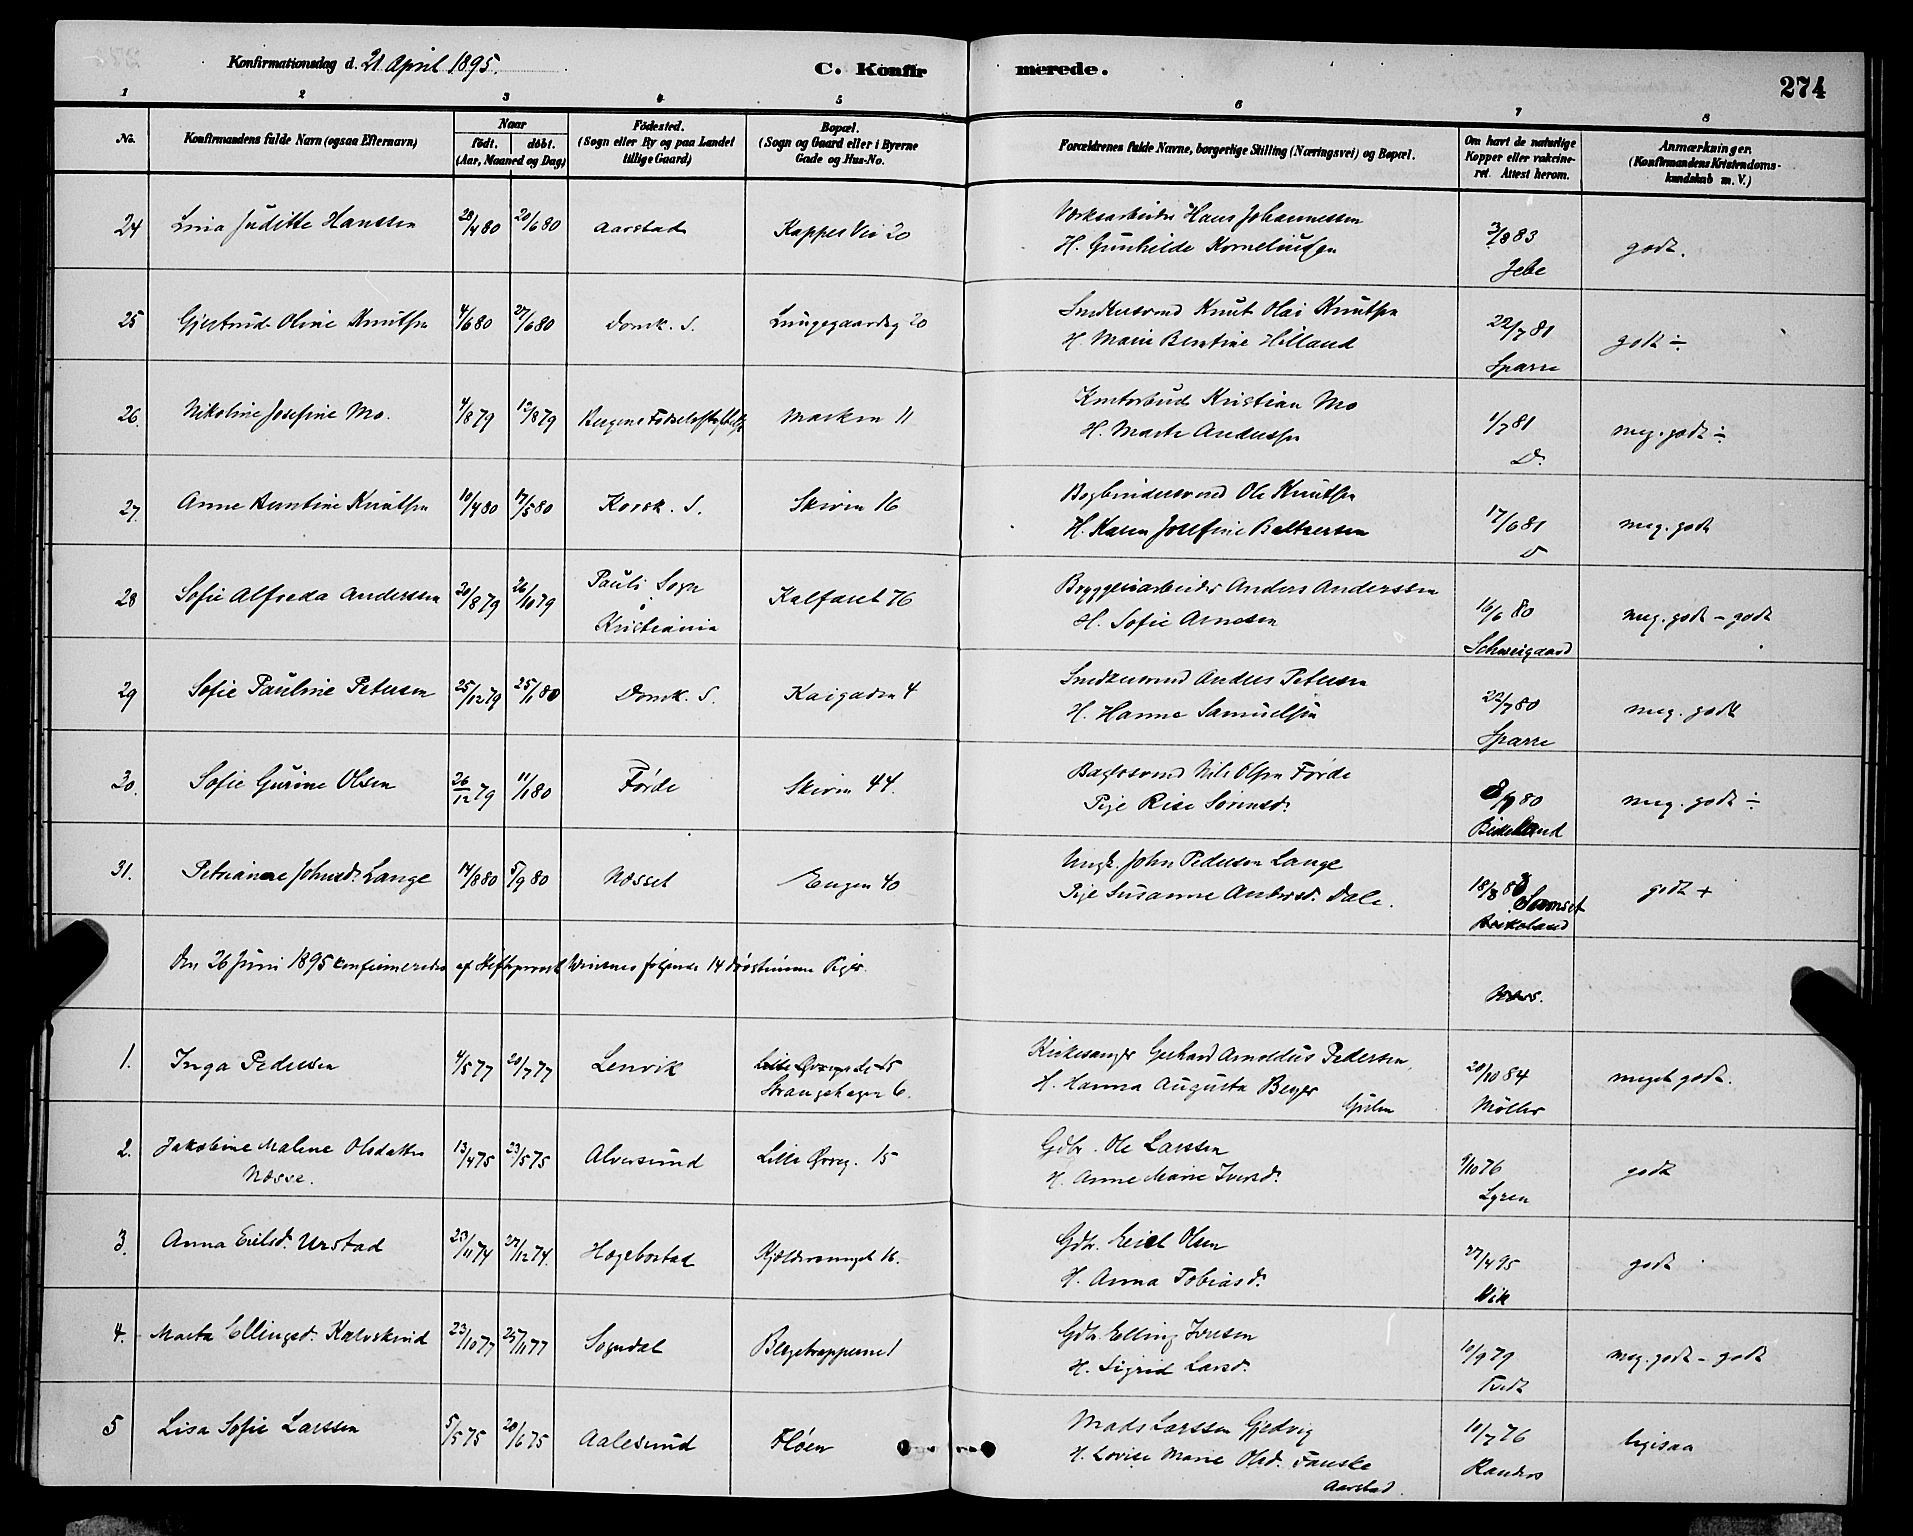 Konfirmationsdag d. 21 April 1895.
C. Konfirmerede.
274
1 2 3 4 5 6 7 8
No.
Konfirmandens fulde Navn (ogsaa Efternavn)
Naar
født. døbt.
(Aar, Maaned og Dag)
Fødested.
(Sogn eller By og paa Landet
tillige Gaard)
Bopæl.
(Sogn og Gaard eller i Byerne
Gade og Hus-No.
Forældrenes fulde Navne, borgerlige Stilling (Næringsvei) og Bopæl.
Om havt de naturlige
Kopper eller vakcine-
ret. Attest herom.
Anmærkninger.
(Konfirmandens Kristendoms-
kundskab m. V.)
24 Lina Juditte Hanssen 28/4 80 20/6 80 Aarstad Kappes Vei 20 Værksarbeider Hans Johannessen 3/8 83 godt.
H. Gunhilde Korneliussen Jebe
25 Gjertrud Oline Knutsen 4/6 80 27/6 80 Domk. S. Lungegaardsg 20 Snedkersvend Knut Olai Knutsen 22/7 81 godt ÷
H. Marie Bentine Hilland Sparre
26. Nikoline Josefine Mo. 4/8 79 12/8 79 Bergens Fødselsstiftelse Marken 11 Kontorbud Kristian Mo 1/7 81 meg. godt ÷
H. Marte Andersen D.
27. Anne Bentine Knutsen 10/4 80 17/5 80 Korsk. S. Skiven 16 Bogbindersvend Ole Knutsen 17/6 81 meg. godt
H. Karen Josefine Baltzersen D
28 Sofie Alfreda Anderssen 20/8 79 26/10 79 Pauli Sogn Kalfaret 76 Bryggeriarbeider Anders Anderssen 16/6 80 meg. godt - godt
Kristiania H. Sofie Arnesen Schweigaard
29 Sofie Pauline Petersen 25/12 79 25/1 80 Domk. S. Kaigaden 4 Snedkersvend Anders Petersen 22/7 80 meg. godt
H. Hanne Samuelsen Sparre
30. Sofie Gurine Olsen 26/12 79 11/1 80 Førde Skiven 44. Bagersvend Nils Olsen Førde 8/9 80 meg. godt ÷
Pige Rise Sørensd.
31. Petriane Johnsd. Lange 14/8 80 5/9 80 Nesset Engen 40 Ungk. John Pedersen Lange 18/8 83 godt +
Pige Susanne Andersd. Dale. Samset
Den 26 Juni 1895 konfirmeredes af Stiftsprovst følgende 14 døvstumme Piger.
1. Inga Pedersen 4/5 77 20/7 77 Lenvik Lille Øvregade 15 Kirkesanger Gerhard Arnoldus Pedersen, 20/10 84 meget godt.
Strangehagen 6. H. Hanna Augusta Berger Møller
2. Jakobine Malene Olsdatter 13/4 75 23/5 75 Alversund Lille Øvreg. 15 Gdbr. Ole Larssen 9/10 76 godt
Næsse. H. Anne Marie Iversd. Lyren
3. Anna Eilsd. Urstad 23/11 74 27/12 74. Hægebostad 16. Gdbr. Eiel Olsen 27/4 95 godt
H. Anna Tobiasd. Vik
4. Marta Ellingsd. Kalvskvid 23/10 77 25/11 77 Sogndal Gdbr Elling Iversen 10/9 79 meg. godt - godt
H. Sigrid Larsd. Tvedt
5 Lisa Sofie Larssen 5/5 75 20/6 75 Aalesund Fløen Mads Larssen Gjedvig 10/7 76 ligesaa
H. Lovise Marie Olsd. Fauske Randers
Aarstad.